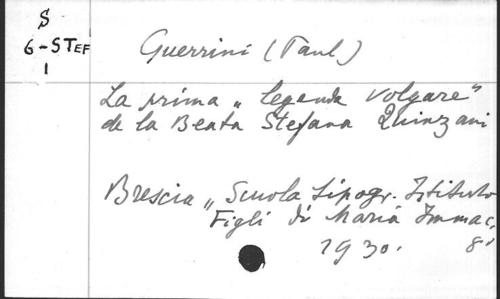 S
6-STEF
1
Guerrini (Paul)
La prima „ legenda volgare"
de la Beata Stefana Quinzani
Brescia „ Scuola Tipogr. Istituto
Figli di Maria Immac,
1930. 8°